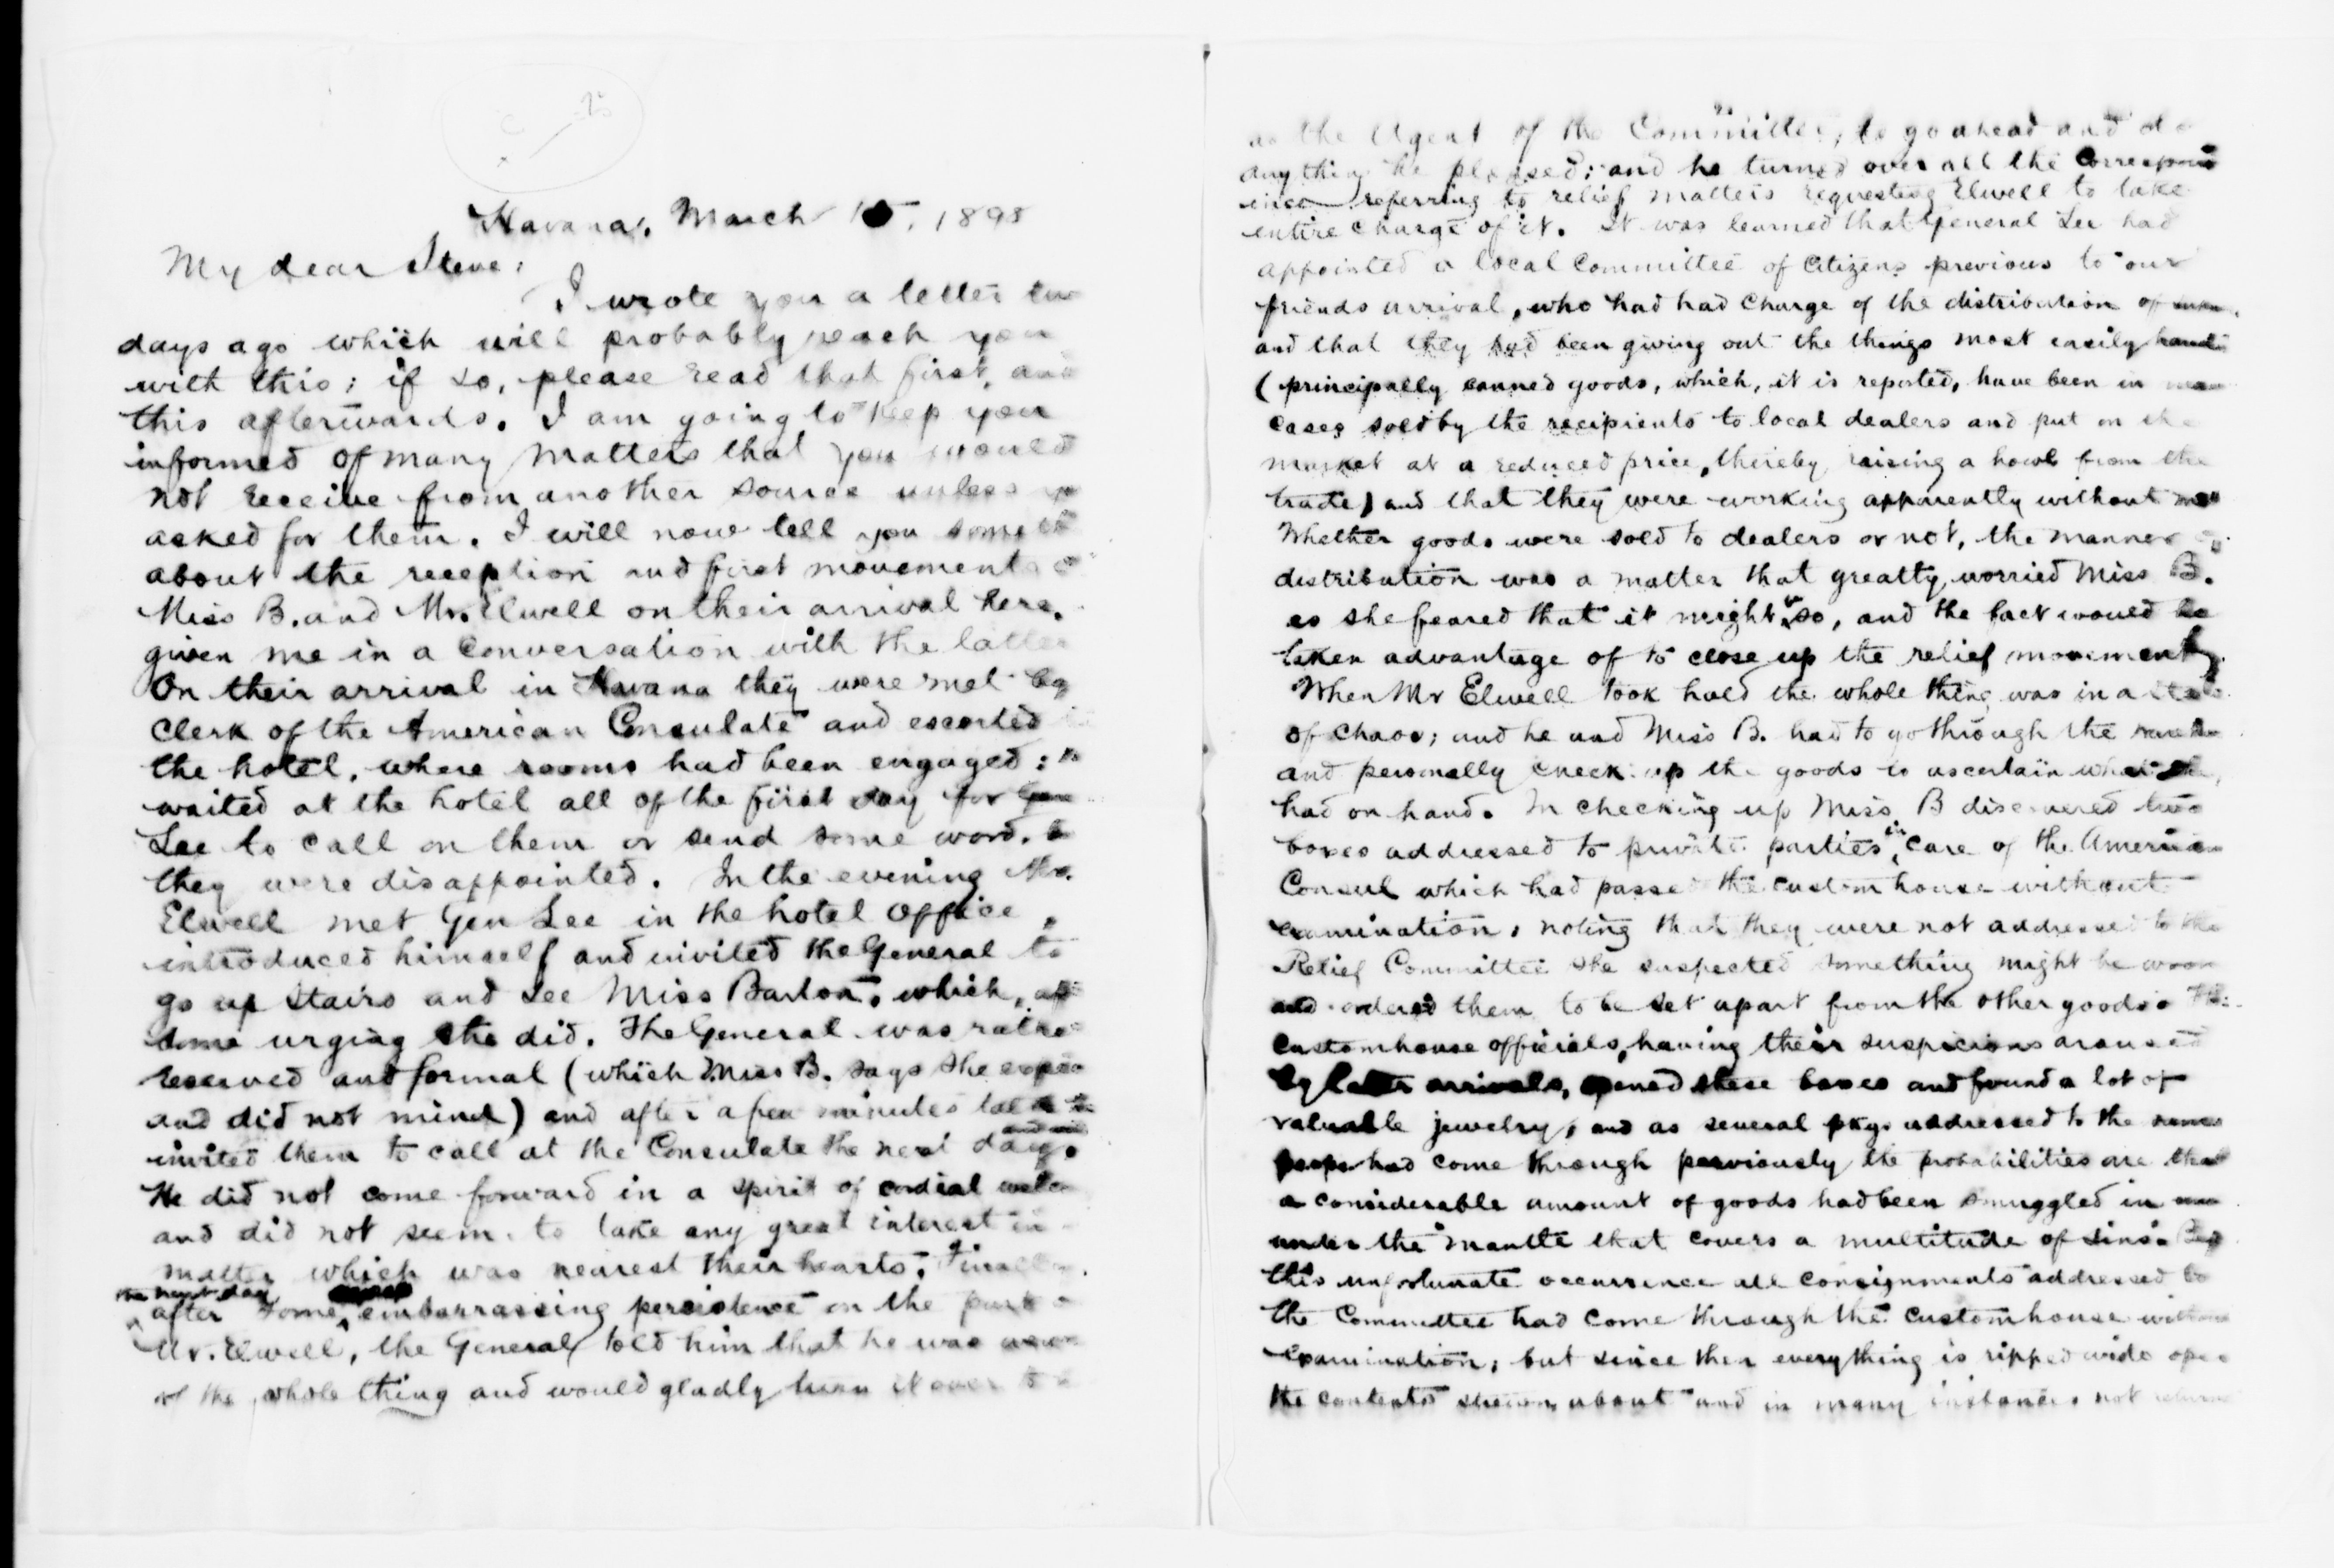 Havana, March 15, 1898
My dear Steve;
I wrote you a letter two
days ago which will probably reach you
with this; if so, please read that first, and
this afterwards. I am going to keep you
informed of many matters that you would
not receive from another source unless you
asked for them. I will now tell you
about the reception and first movements of
Miss B. and Mr. Elwell on their arrival here,
given me in a conversation with the latter
On their arrival in Havana they were met by
Clerk of the American Consulate and escorted
the hotel, where rooms had been engaged:
waited at the hotel all of the first day for Gen
Lee to call on them or send some word,
they were disappointed. In the evening Mr.
Elwell met Gen Lee in the hotel office,
introduced himself and invited the General to
go up stairs and see Miss Barton, which,
some urging she did. The General was rather
reserved and formal (which Miss B. says she
and did not mind) and after a few minutes
invited them to call at the Consulate the next day.
He did not come forward in a spirit of cordial
and did not seem to take any great interest in
matter which was nearest their hearts. Finally
the next day
after some embarrassing persistence on the part
Mr. Elwell, the General told him that he was
of the whole thing and would gladly turn it over to
as the Agent of the Committee, to go ahead and do
anything he pleased; and he turned over all the correspond
ence referring to relief matters requesting Elwell to take
entire charge of it. It was learned that General Lee had
appointed a local Committee of Citizens previous to our
friends arrival, who had had charge of the distribution of
and that they had been giving out the things most easily
(principally canned goods, which, it is reported, have been in
cases sold by the recipients to local dealers and put on the
market at a reduced price, thereby raising a howl from the
trade) and that they were working apparently without
Whether goods were sold to dealers or not, the manner of
distribution was a matter that greatly worried Miss B.
as she feared that it might be so, and the fact would be
taken advantage of to close up the relief movement.
When Mr Elwell took hold the whole thing was in a state
of chaos; and he and Miss B. had to go through the
and personally check up the goods to ascertain what
had on hand. In checking up Miss B discovered two
boxes addressed to private parties, in care of the American
Consul which had passed the custom house without
examination, noting that they were not addressed to the
Relief Committee she suspected something might be
and ordered them to be set apart from the other goods.
Customhouse officials, having their suspicions aroused
by later arrivals, opened these boxes and found a lot of
valuable jewelry, and as several pkgs addressed to the same
had come through perviously the probabilities are that
a considerable amount of goods had been smuggled in
under the mantle that covers a multitude of sins.
this unfortunate occurrence all consignments addressed to
the Committee had come through the customhouse without
examination; but since then everything is ripped wide open
the contents strewn about and in many instances not